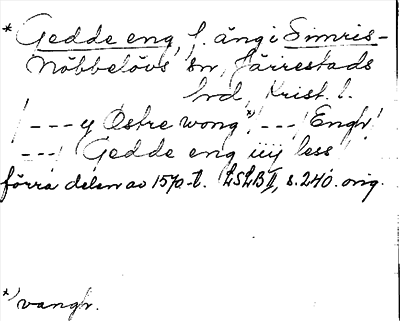 * Gedde eng, f. äng i Simris-
Nöbbelövs sn, Järrestads
hd, Krist. l.
/--- y Østre wong*/ ---/ Engh/
---/ Gedde eng iiij less
förra delen av 1570-t. LSLB II, s. 240. orig.
*) vangh.